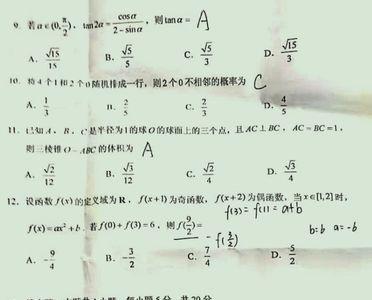 9. 若α∈(0, π/2), tan2α = cosα/(2−sinα), 则tanα = A
A. √15/15 B. √5/5 C. √5/3 D. √15/3
10. 将4个1和2个0随机排成一行, 则2个0不相邻的概率为 C
A. 1/3 B. 2/5 C. 2/3 D. 4/5
11. 已知A, B, C是半径为1的球O的球面上的三个点, 且AC⊥BC, AC=BC=1,
则三棱锥O−ABC的体积为 A
A. √2/12 B. √3/12 C. √2/4 D. √3/4
12. 设函数f(x)的定义域为R, f(x+1)为奇函数, f(x+2)为偶函数, 当x∈[1,2]时,
f(3)=f(1)=a+b
f(x)=ax²+b. 若f(0)+f(3)=6, 则f(9/2)=
−f(3/2) b=6 a=−b
A. −9/4 B. −3/2 C. 7/4 D. 5/2